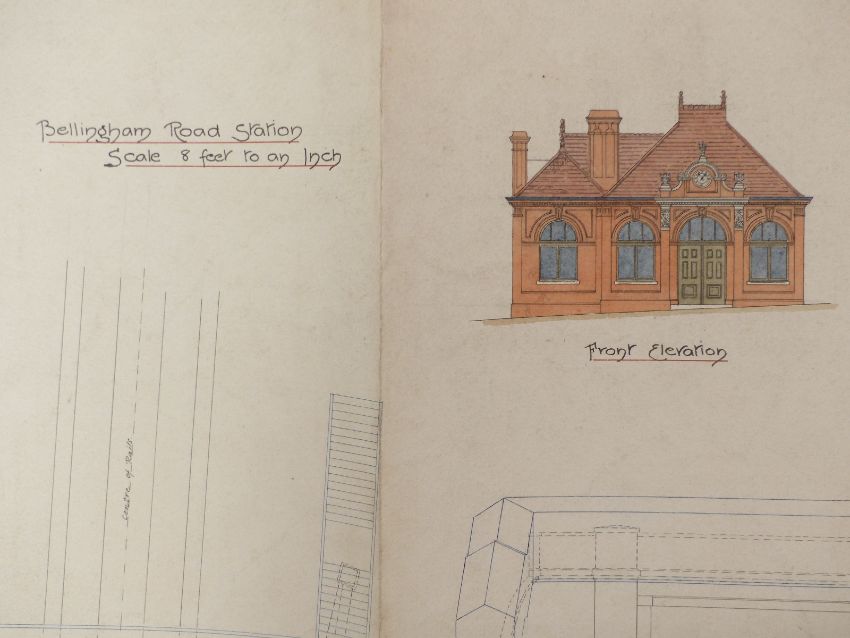 Bellingham Road Station
Scale 8 feet to an Inch
Front Elevation
Centre of Rails